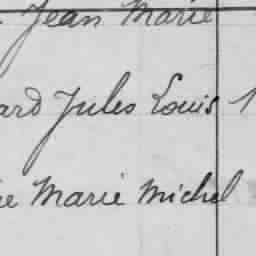 Jean Marie
ard Jules Louis
Marie Michel